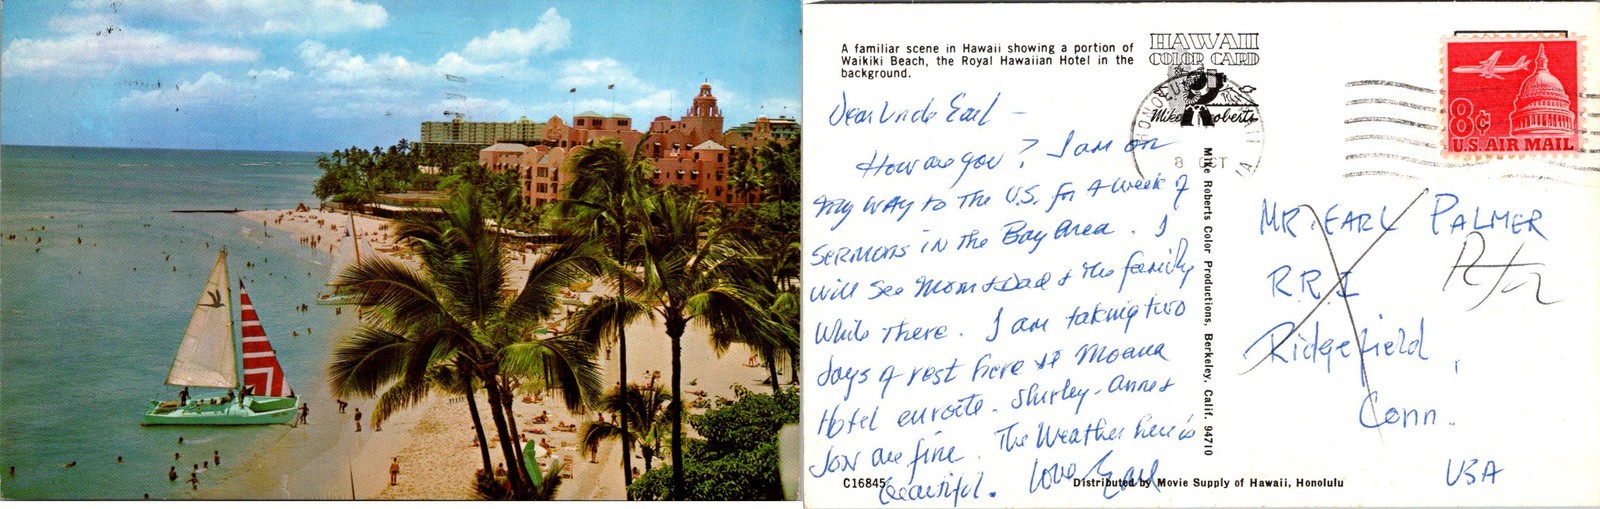 A familiar scene in Hawaii showing a portion of
Waikiki Beach, the Royal Hawaiian Hotel in the
background.
HAWAII
COLOR CARD
Mike Roberts
HONOLULU
8 OCT
8¢
U.S. AIR MAIL
Dear Uncle Earl –
How are you? I am on
my way to the U.S. for a week of
sermons in the Bay Area. I
will see Mom & Dad & the family
while there. I am taking two
days of rest here at Moana
Hotel enroute. Shirley-Anne &
Jon are fine. The weather here is
beautiful. Love, Earl
Mike Roberts Color Productions, Berkeley, Calif. 94710
MR. EARL PALMER
R.R.1
Ridgefield,
Conn.
USA
C16845
Distributed by Movie Supply of Hawaii, Honolulu